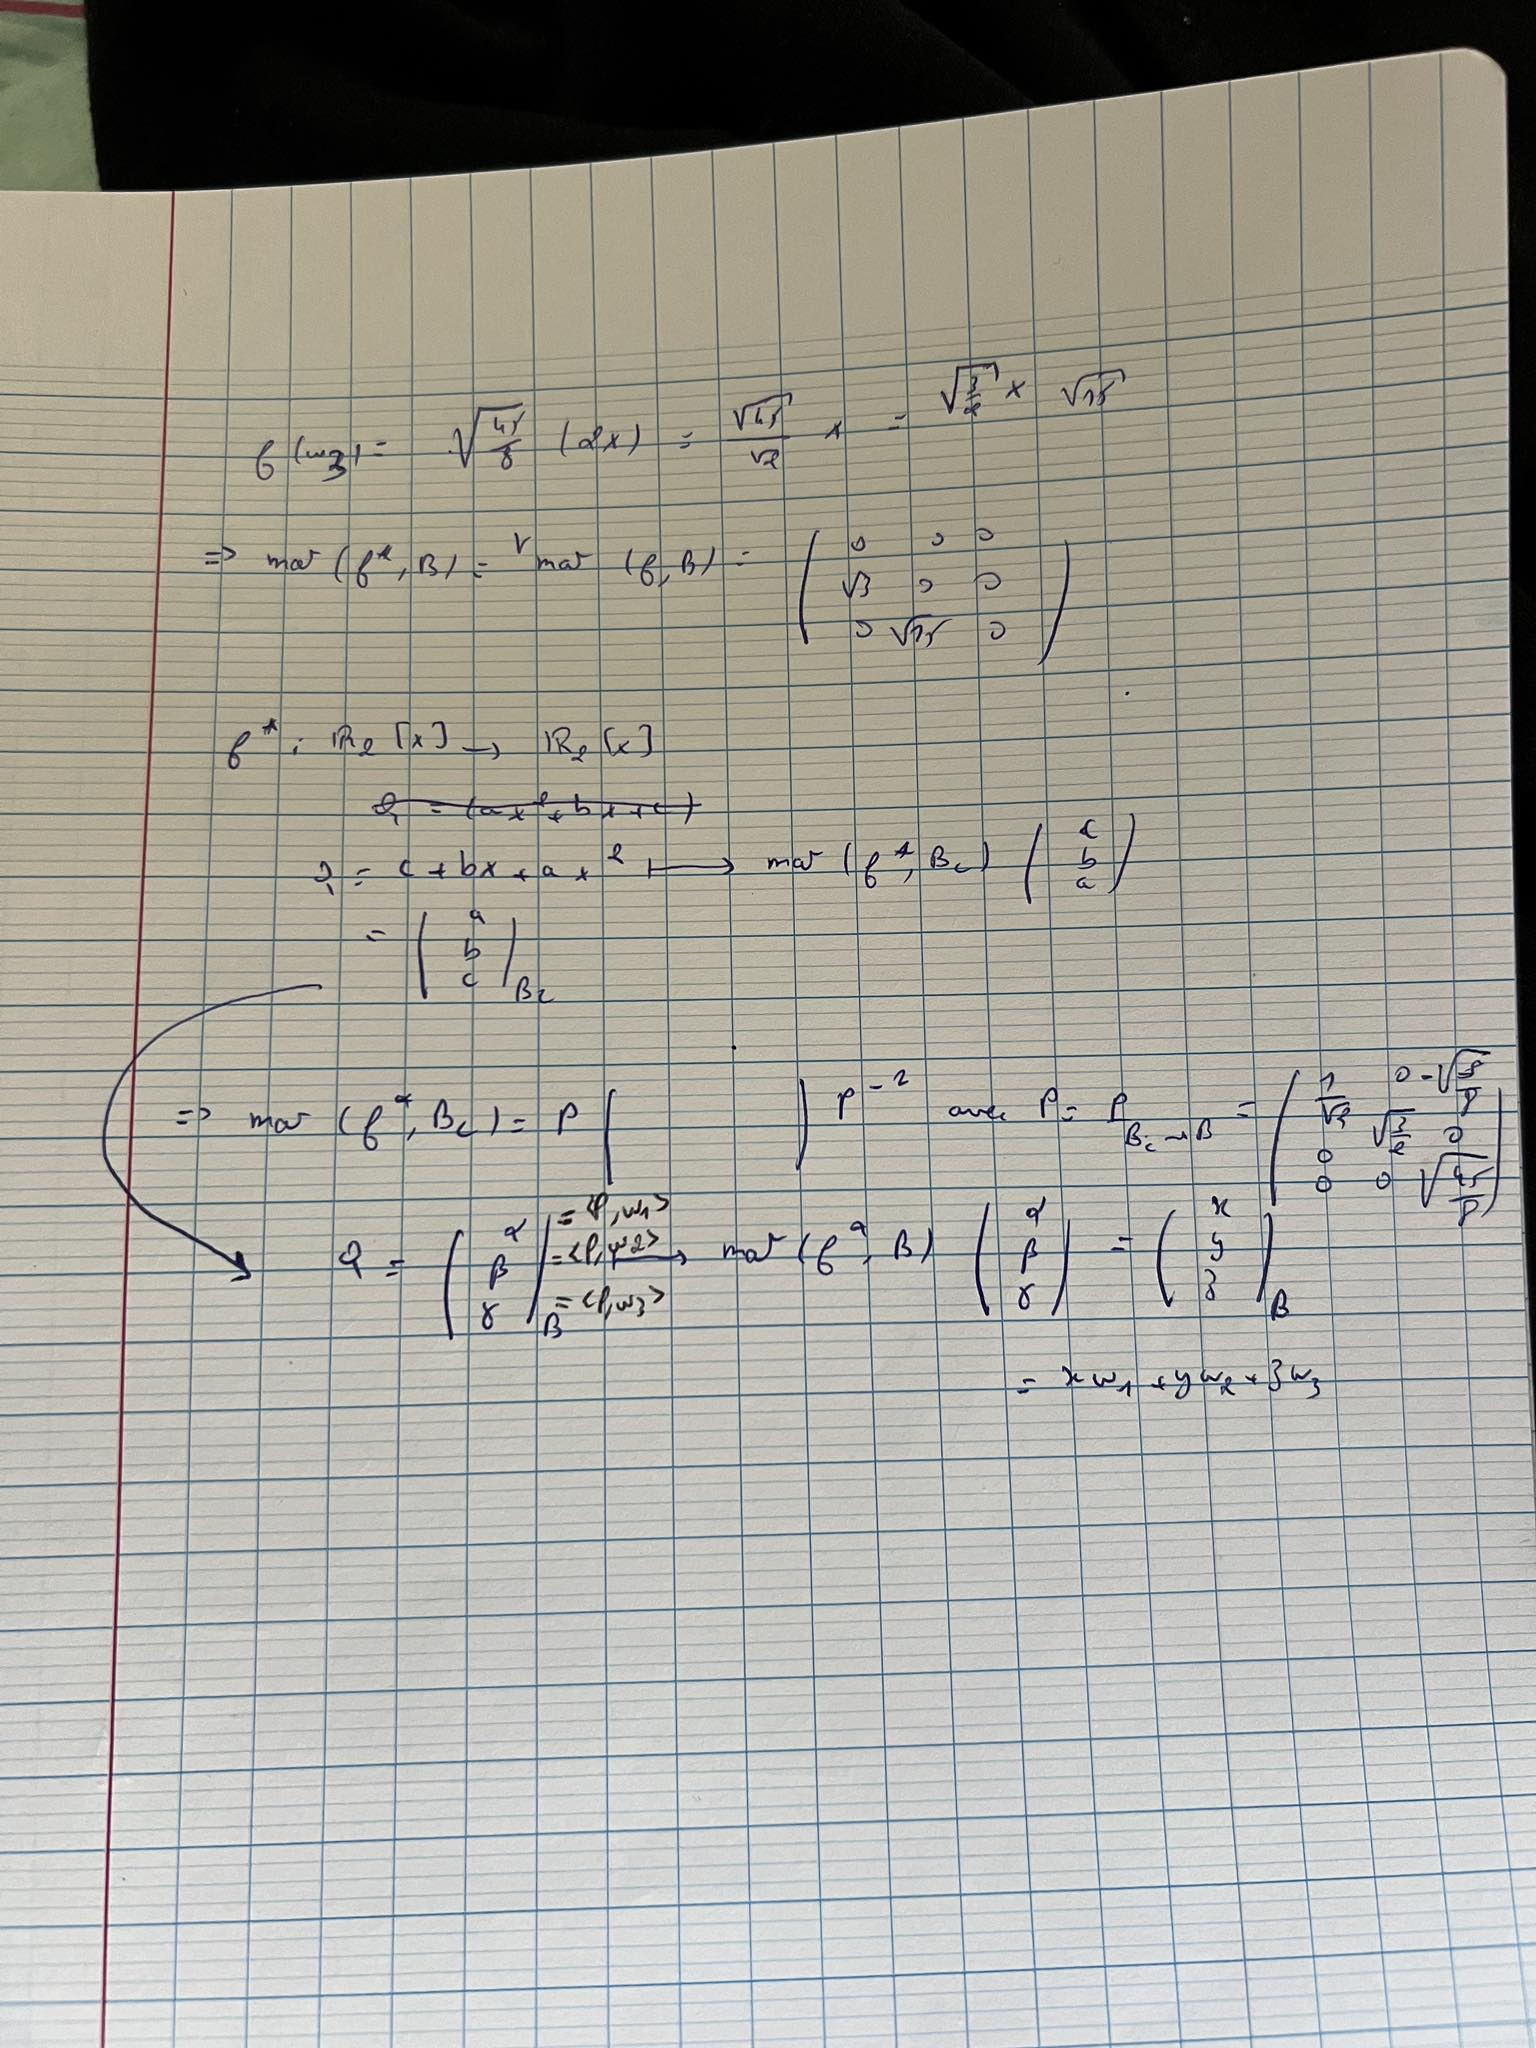 f(w3) = √(45/8) (2x) = √45/√2 x = √(3/2) x √15
=> mat (f*, B) = ᵗmat (f, B) = ( 0 0 0 ; √3 0 0 ; 0 √15 0 )
f* : ℝ₂[x] → ℝ₂[x]
Q = (ax² + bx + c)
Q = c + bx + ax² ⟼ mat (f*, Bc) ( c ; b ; a )
= ( a ; b ; c )Bc
=> mat (f*, Bc) = P (     ) P⁻¹ avec P = P Bc→B = ( 1/√2 0 -√(5/8) ; 0 √(3/2) 0 ; 0 0 √(45/8) )
Q = ( α ; β ; γ )B = <P, w1> = <P, w2> = <P, w3> ⟼ mat (f*, B) ( α ; β ; γ ) = ( x ; y ; z )B
= x w1 + y w2 + z w3